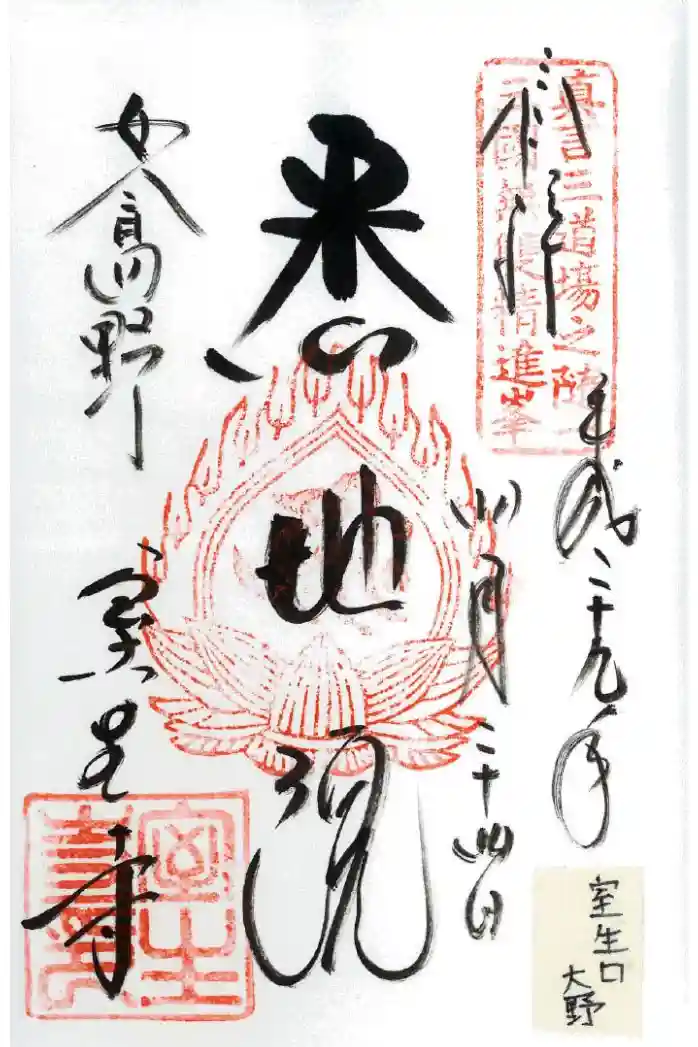 奉拝
真言三道場之随一
三國無雙精進峯
平成二十九年
四月二十四日
悉地院
女人高野
室生寺
室生口
大野